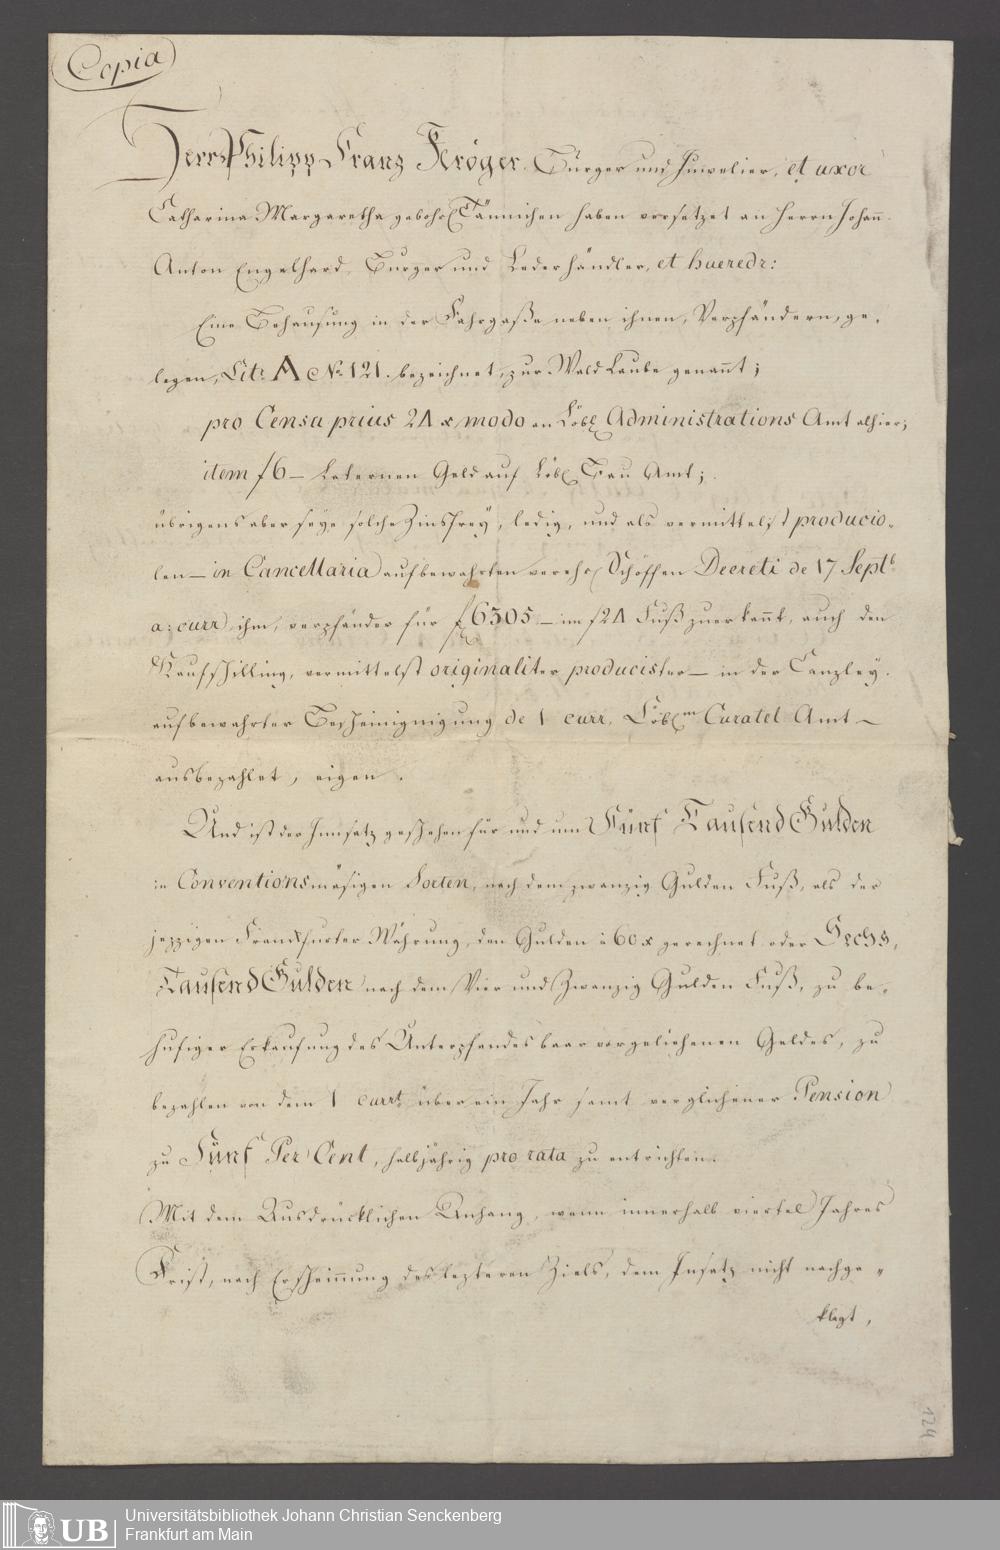 Copia
Herr Philipp Franz Kröger, Burger und Juwelier, et uxor
Catharina Margaretha gebohr. Tännichen haben versetzet an Herrn Johann
Anton Engelhard, Burger und Lederhändler, et haeredr:
Eine Behausung in der Fahrgaße neben ihnen, Verpfändern, ge-
legen, Lit: A No. 121. bezeichnet, zur Wald Laube genannt;
pro Censu prius 24 x modo an Löbl Administrations Amt alhier;
item f 6 — Laternen Geld auf Löbl Bau Amt;
übrigens aber seye solche Zinsfrey, ledig, und als vermittelst producir-
ten — in Cancellaria aufbewahrten verehrl Schöffen Decreti de 17 Septb
a: curr ihm, verpfänder für f 6305 — im f 24 Fuß zuerkannt, auch den
Kaufschilling, vermittelst originaliter producirter — in der Canzley
aufbewahrter Bescheinignigung de 1 curr. Löblm Curatel Amt —
ausbezahlet, eigen.
Und ist der Innsatz geschehen für und um Fünf Tausend Gulden
in Conventionsmäsigen Sorten, nach dem zwanzig Gulden Fuß, als der
jezzigen Frankfurter Währung, den Gulden à 60 x gerechnet oder Sechs
Tausend Gulden nach dem Vier und Zwanzig Gulden Fuß, zu be-
hufiger Erkaufung des Unterpfandes baar vorgeliehenen Geldes, zu
bezahlen von dem 1 currt über ein Jahr samt verglichener Pension
zu Fünf Per Cent, halbjährig pro rata zu entrichten.
Mit dem Ausdrücklichen Anhang, wenn innerhalb viertel Jahres
Frist, nach Erscheinnung des lezteren Ziels, dem Insatz nicht nachge-
klagt,
124
UB
Universitätsbibliothek Johann Christian Senckenberg
Frankfurt am Main